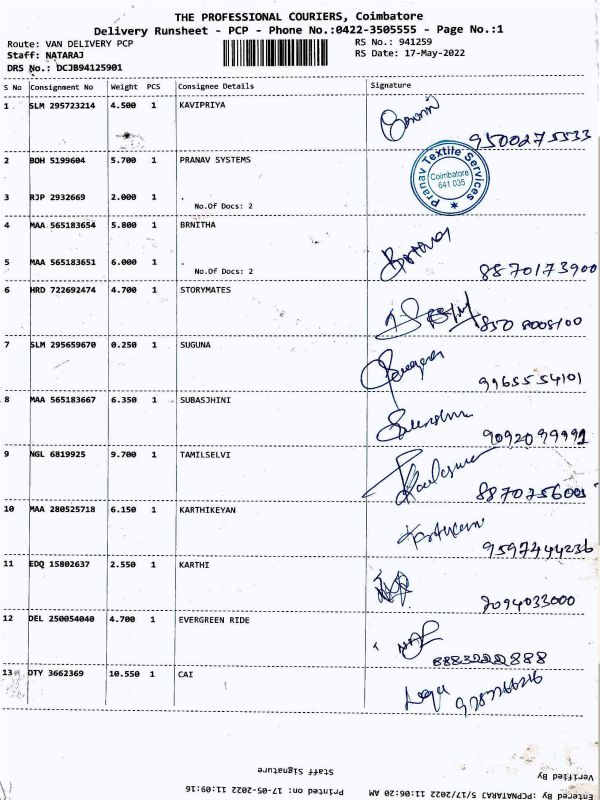 THE PROFESSIONAL COURIERS, Coimbatore
Delivery Runsheet - PCP - Phone No.:0422-3505555 - Page No.:1
Route: VAN DELIVERY PCP
RS No.: 941259
Staff: NATARAJ
RS Date: 17-May-2022
DRS No.: DCJB94125901
S No Consignment No Weight PCS Consignee Details Signature
1 SLM 295723214 4.500 1 KAVIPRIYA
9500275533
2 BOH 5199604 5.700 1 PRANAV SYSTEMS
Pranav Textile Services
Coimbatore
641 035
3 RJP 2932669 2.000 1
No.Of Docs: 2
4 MAA 565183654 5.800 1 BRNITHA
5 MAA 565183651 6.000 1
No.Of Docs: 2
8870173900
6 HRD 722692474 4.700 1 STORYMATES
7 SLM 295659670 0.250 1 SUGUNA
9965554101
8 MAA 565183667 6.350 1 SUBASJHINI
9 NGL 6819925 9.700 1 TAMILSELVI
10 MAA 280525718 6.150 1 KARTHIKEYAN
9597444236
11 EDQ 15802637 2.550 1 KARTHI
12 DEL 250054040 4.700 1 EVERGREEN RIDE
13 OTY 3662369 10.550 1 CAI
Staff Signature
Verified By
Printed on: 17-05-2022 11:09:16
Entered By :PCPNATARAJ 5/17/2022 11:06:20 AM